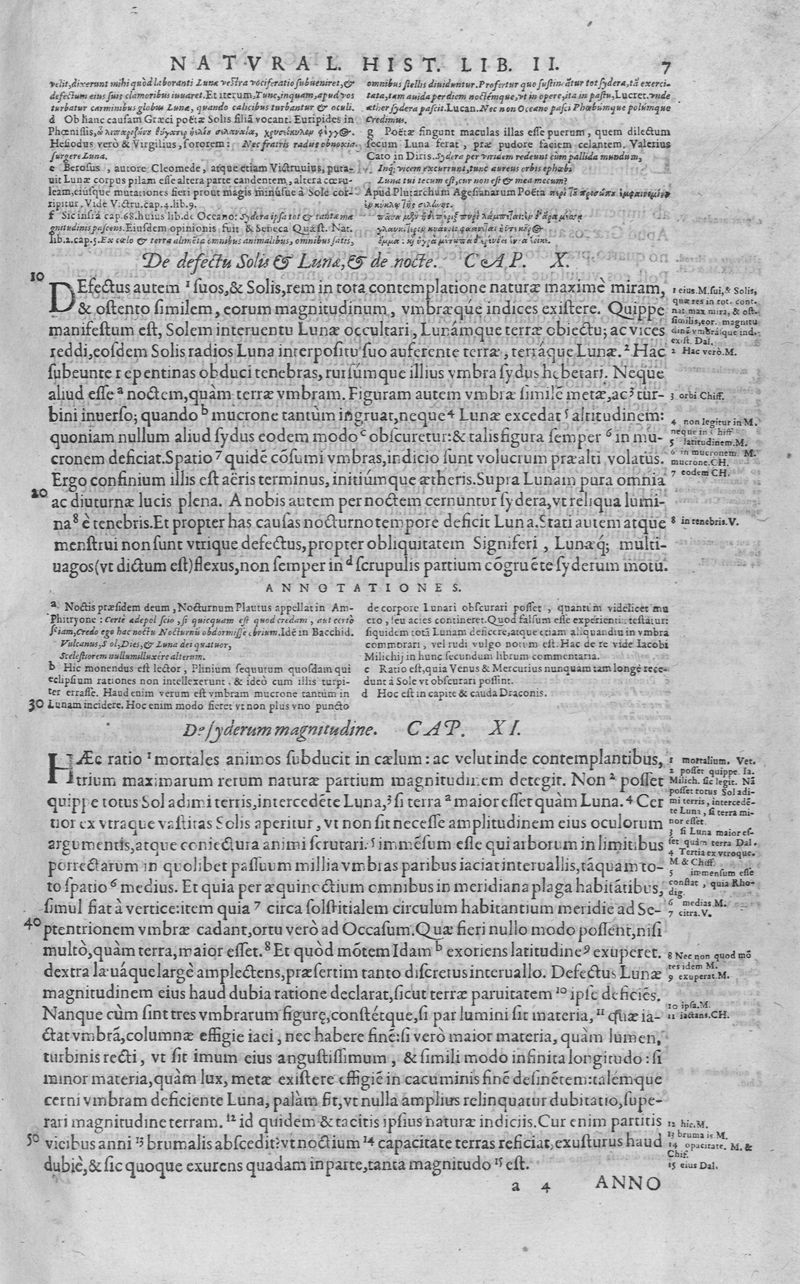 NATVRAL. HIST. LIB. II. 7
velit, dixerunt mihi quòd laboranti Lunæ vestra vociferatio subueniret, &
defectum eius suis clamoribus iuuaret. Et iterum, Tunc, inquam, apud vos
turbatur carminibus globus Lunæ, quando calicibus turbantur & oculi.
d Ob hanc causam Græci poëtæ Solis filiā vocant. Euripides in
Phœnissis,
Hesiodus verò & Virgilius, sororem: Nec fratris radiis obnoxia
surgere Luna.
e Berosus, autore Cleomede, atque etiam Victruuius, puta-
uit Lunæ corpus pilam esse altera parte candentem, altera cœru-
leam, eiusque mutationes fieri prout magis minúsue à Sole cor-
ripitur. Vide Victru. cap. 4. lib. 9.
f Sic infrà cap. 68. huius lib. de Oceano: Sydera ipsa tot & tanta ma
gnitudinis pascens. Eiusdem opinionis fuit & Seneca Quæst. Nat.
lib. 2. cap. 5. Ex cœlo & terra alimēta omnibus animalibus, omnibus satis,
omnibus stellis diuiduntur. Profertur quo sustineātur tot sydera, tā exerci-
tata, tam auida per diem noctémque, vt in opere, ita in pastu, Lucret. vnde
æther sydera pascit. Lucan. Nec non Oceano pasci Phœbumque polumque
Credimus.
g Poëtæ fingunt maculas illas esse puerum, quem dilectum
secum Luna ferat, præ pudore faciem celantem. Valerius
Cato in Diris. Sydera per viridem redeunt cùm pallida mundum,
Inq; vicem excurrunt, tunc aureus orbis ephœbi
Luna tui tecum est, cur non est & mea mecum?
Apud Plutarchum Agesianarum Poëta
10
De defectu Solis & Lunæ, & de nocte. CAP. X.
DEfectus autem ¹ suos, & Solis, rem in tota contemplatione naturæ maximè miram,
& ostento similem, eorum magnitudinum, vmbræqué indices existere. Quippe
manifestum est, Solem interuentu Lunæ occultari, Lunámque terræ obiectu; ac vices
reddi, eosdem Solis radios Luna interpositu suo auferente terræ, terráque Lunæ. ² Hac
subeunte repentinas obduci tenebras, rursúmque illius vmbra sydus hebetari. Neque
aliud esse ª noctem, quàm terræ vmbram. Figuram autem vmbræ similē metæ, ac ³ tur-
bini inuerso; quando ᵇ mucrone tantùm ingruat, neque ⁴ Lunæ excedat ⁵ altitudinem:
quoniam nullum aliud sydus eodem modo ᶜ obscuretur: & talis figura semper ⁶ in mu-
cronem deficiat. Spatio ⁷ quidē cōsumi vmbras, indicio sunt volucrum præalti volatus.
Ergo confinium illis est aëris terminus, initiúmque ætheris. Supra Lunam pura omnia
20
ac diuturnæ lucis plena. A nobis autem per noctem cernuntur sydera, vt reliqua lumi-
na ⁸ è tenebris. Et propter has causas nocturno tempore deficit Luna. Stati autem atque
menstrui non sunt vtrique defectus, propter obliquitatem Signiferi, Lunæq́; multi-
uagos (vt dictum est) flexus, non semper in ᵈ scrupulis partium cōgruēte syderum motu.
1 eius. M. sui, & Solis,
quæ res in tot. cont-
nat. max mira, & ost-
similis, eor. magnitu
dinē vmbræque ind.
exist. Dal.
2 Hac verò. M.
3 orbi Chiff.
4 non legitur in M.
neque in Chiff
5 latitudinem. M.
6 in mucronem. M.
mucrone. CH.
7 eodem CH.
8 in tenebris. V.
ANNOTATIONES.
a Noctis præsidem deum, Nocturnum Plautus appellat in Am-
Phitryone: Certè ædepol scio, si quicquam est quod credam, aut certò
sciam, Credo ego hac noctu Nocturnū obdormisse ebrium. Idē in Bacchid.
Vulcanus, Sol, Dies, & Luna dei quatuor,
Scelestiorem nullum illuxere alterum.
b Hic monendus est lector, Plinium sequutum quosdam qui
eclipsium rationes non intellexerunt, & ideò cum illis turpi-
ter errasse. Haud enim verum est vmbram mucrone tantùm in
30 Lunam incidere. Hoc enim modo fieret vt non plus vno puncto
de corpore Lunari obscurari posset, quantùm videlicet mu
cro, seu acies contineret. Quod falsum esse experientia testatur:
siquidem totā Lunam deficere, atque etiam aliquandiu in vmbra
commorari, vel rudi vulgo notum est. Hac de re vide Iacobi
Milichij in hunc secundum librum commentaria.
c Ratio est, quia Venus & Mercurius nunquam tam longè rece-
dunt à Sole vt obscurari possint.
d Hoc est in capite & cauda Draconis.
De syderum magnitudine. CAP. XI.
HÆc ratio ¹ mortales animos subducit in cælum: ac velut inde contemplantibus,
trium maximarum rerum naturæ partium magnitudinem detegit. Non ² posset
quippe totus Sol adimi terris, intercedēte Luna, ³ si terra ª maior esset quàm Luna. ⁴ Cer
tior ex vtraque vastitas Solis aperitur, vt non sit necesse amplitudinem eius oculorum
argumentis, atque coniectura animi scrutari. ⁵ immēsum esse quia arborum in limitibus
porrectarum in quolibet passuum millia vmbras paribus iaciat interuallis, tāquam to-
to spatio ⁶ medius. Et quia per æquinoctium omnibus in meridiana plaga habitātibus,
simul fiat à vertice: item quia ⁷ circa solstitialem circulum habitantium meridie ad Se-
40 ptentrionem vmbræ cadant, ortu verò ad Occasum. Quæ fieri nullo modo possent, nisi
multò, quàm terra, maior esset. ⁸ Et quòd mōtem Idam ᵇ exoriens latitudine ⁹ exuperet.
dextra læuáque largè amplectens, præsertim tanto discretus interuallo. Defectus Lunæ
magnitudinem eius haud dubia ratione declarat, sicut terræ paruitatem ¹⁰ ipse deficiēs.
Nanque cùm sint tres vmbrarum figuræ, constétque, si par lumini sit materia, ¹¹ quæ ia-
ctat vmbrā, columnæ effigie iaci, nec habere finē: si verò maior materia, quàm lumen,
turbinis recti, vt sit imum eius angustissimum, & simili modo infinita longitudo: si
minor materia, quàm lux, metæ existere effigiē in cacuminis finē desinētem: talémque
cerni vmbram deficiente Luna, palàm fit, vt nulla amplius relinquatur dubitatio, supe-
rari magnitudine terram. ¹² id quidem & tacitis ipsius naturæ indiciis. Cur enim partitis
50 vicibus anni ¹³ brumalis abscedit? vt noctium ¹⁴ capacitate terras reficiat, exusturus haud
dubiè, & sic quoque exurens quadam in parte, tanta magnitudo ¹⁵ est.
1 mortalium. Vet.
2 posset quippe. Ia.
Milich. sic legit. Nā
posset totus Sol adi-
mi terris, intercedē-
te Luna, si terra mi-
nor esset.
3 si Luna maior es-
set quàm terra Dal.
4 Tertia ex vtroque.
M & Chiff.
5 immensum esse
constat, quia Rho-
dig.
6 medias. M.
7 citra. V.
8 Nec non quod mō
tes idem M.
9 exuperat. M.
10 ipsa. M.
11 iactans. CH.
12 hic. M.
13 bruma is M.
14 opacitate. M. &
Chif.
15 eius Dal.
a 4 ANNO